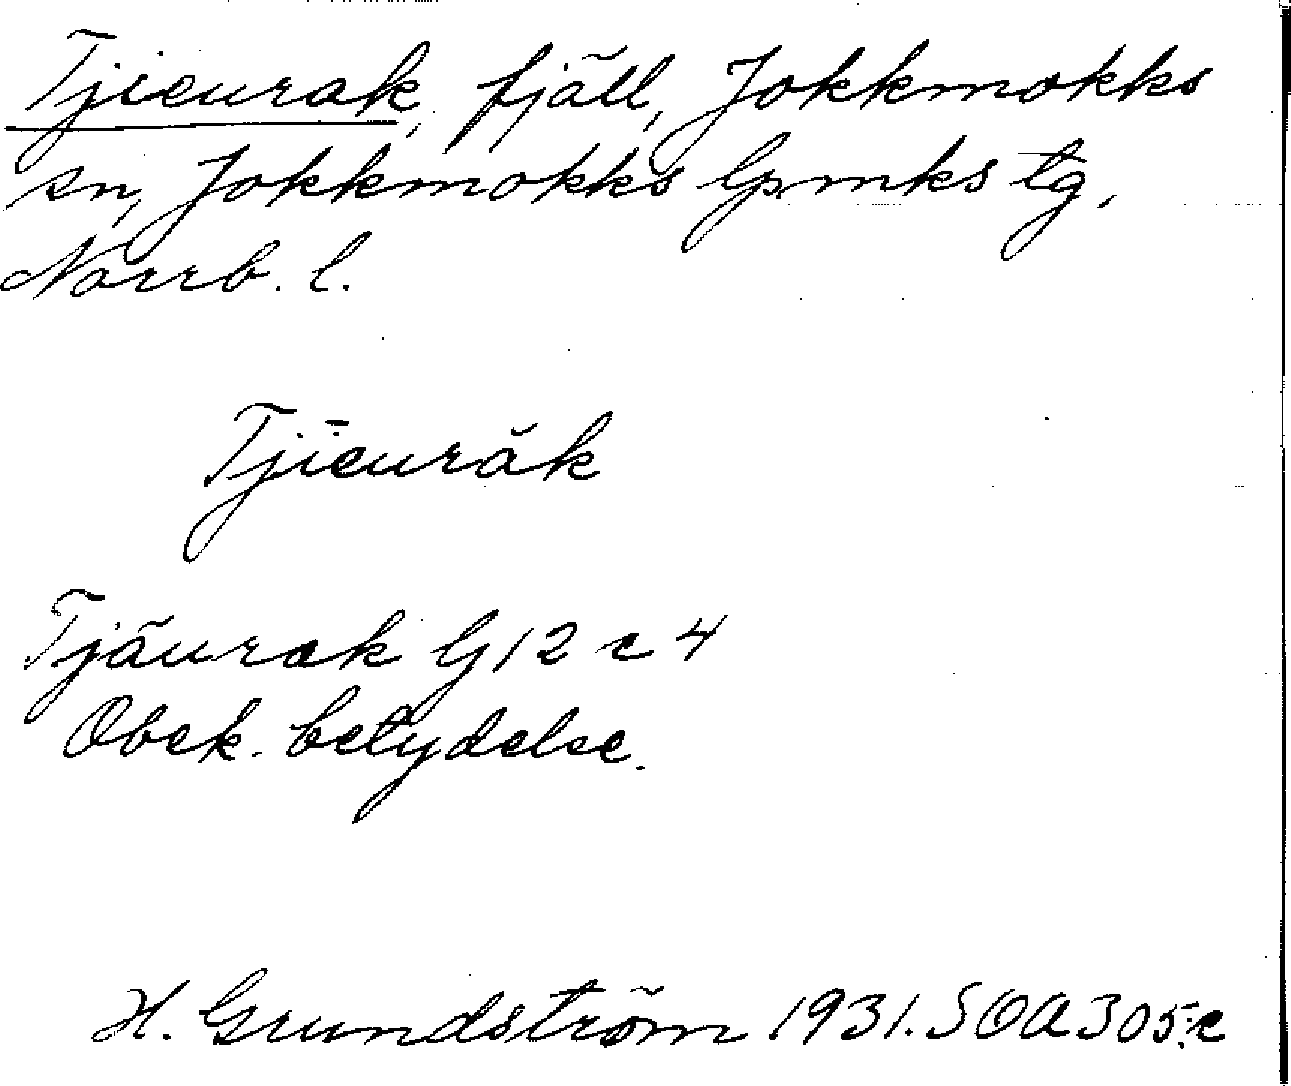 Tjieurak, fjäll, Jokkmokks
sn, Jokkmokks lpmks tg,
Norrb. l.
Tjīeurăk
Tjäurak G12 c 4
Obek. betydelse.
H. Grundström 1931. SOA 305:c